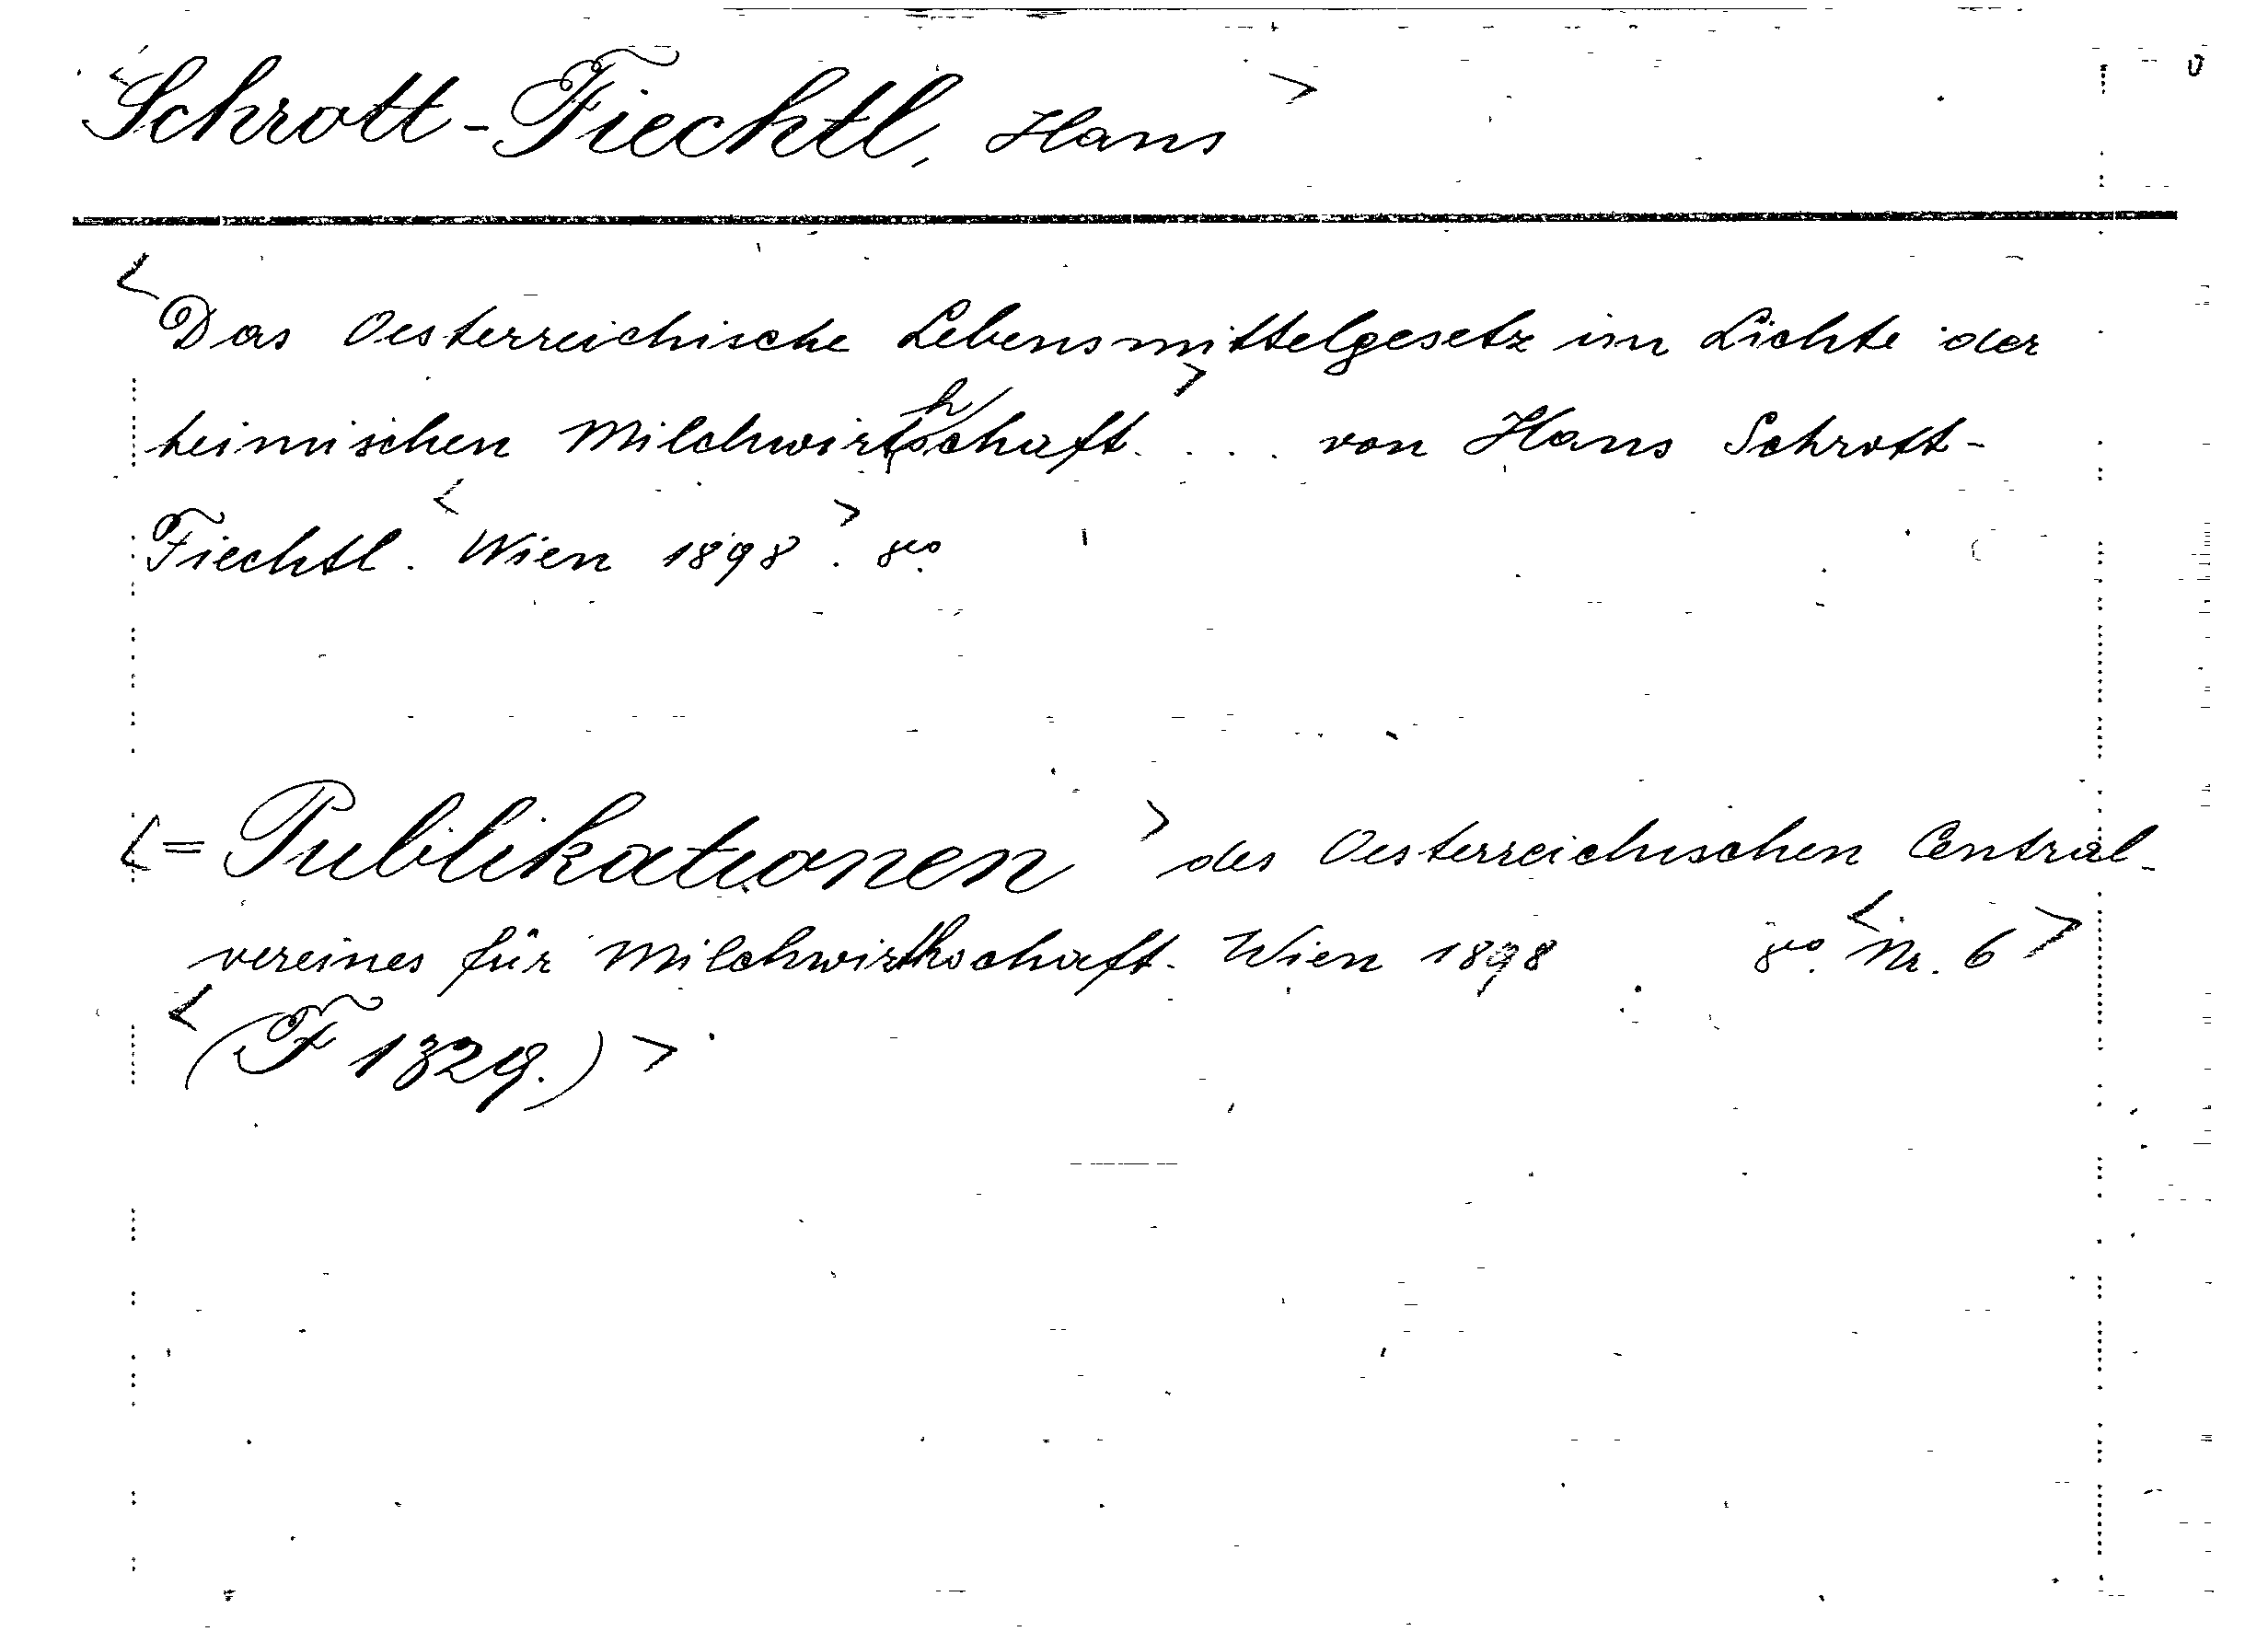 <Schrott-Fiechtl, Hans>
<Das Oesterreichische Lebensmittelgesetz im Lichte der
heimischen Milchwirthschaft.> ... von Hans Schrott-
Fiechtl. <Wien 1898>. 8vo.
<= Publikationen> des Oesterreichischen Central-
vereines für Milchwirthschaft. Wien 1898 8vo. <Nr. 6>
<(F 1329.)>